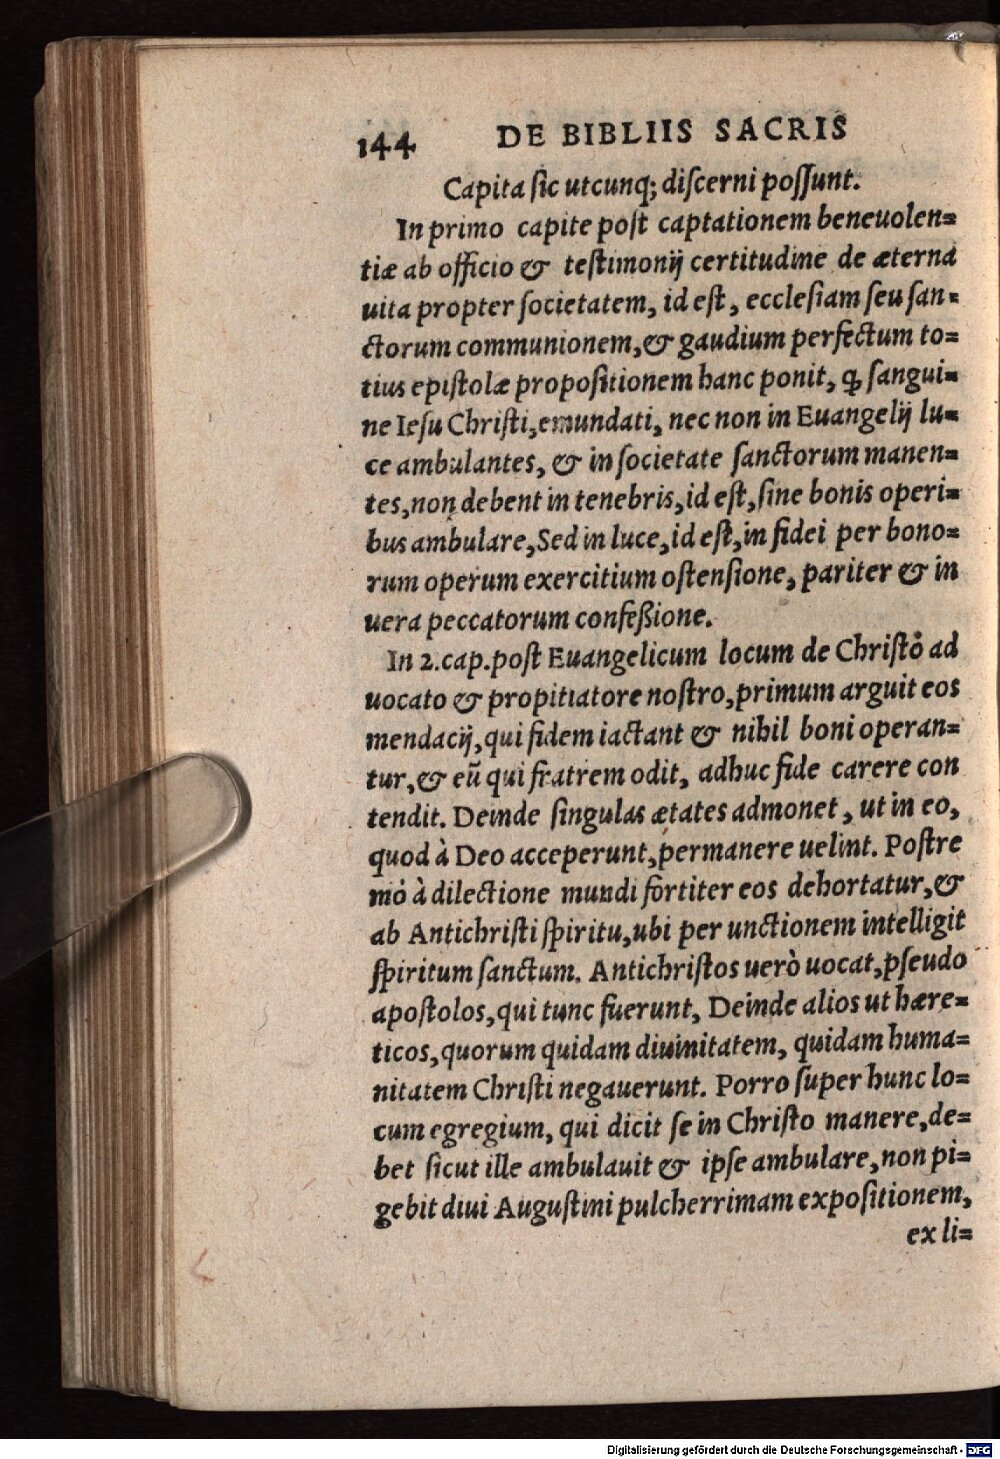 144 DE BIBLIIS SACRIS
Capita ſic utcunq; diſcerni poſſunt.
In primo capite poſt captationem beneuolen=
tiæ ab officio & teſtimonij certitudine de æterna
uita propter ſocietatem, id eſt, eccleſiam ſeu ſan=
ctorum communionem, & gaudium perfectum to=
tius epiſtolæ propoſitionem hanc ponit, ꝙ ſangui=
ne Ieſu Chriſti, emundati, nec non in Euangelij lu=
ce ambulantes, & in ſocietate ſanctorum manen=
tes, non debent in tenebris, id eſt, ſine bonis operi=
bus ambulare, Sed in luce, id eſt, in fidei per bono=
rum operum exercitium oſtenſione, pariter & in
uera peccatorum confeßione.
In 2. cap. poſt Euangelicum locum de Chriſtô ad
uocato & propitiatore noſtro, primum arguit eos
mendacij, qui fidem iactant & nihil boni operan=
tur, & eũ qui fratrem odit, adhuc fide carere con
tendit. Deinde ſingulas ætates admonet, ut in eo,
quod à Deo acceperunt, permanere uelint. Poſtre
mò à dilectione mundi fortiter eos dehortatur, &
ab Antichriſti ſpiritu, ubi per unctionem intelligit
ſpiritum ſanctum. Antichriſtos uerò uocat, pſeudo
apoſtolos, qui tunc fuerunt, Deinde alios ut hære=
ticos, quorum quidam diuinitatem, quidam huma=
nitatem Chriſti negauerunt. Porro ſuper hunc lo=
cum egregium, qui dicit ſe in Chriſto manere, de=
bet ſicut ille ambulauit & ipſe ambulare, non pi=
gebit diui Auguſtini pulcherrimam expoſitionem,
ex li=
Digitalisierung gefördert durch die Deutsche Forschungsgemeinschaft - DFG